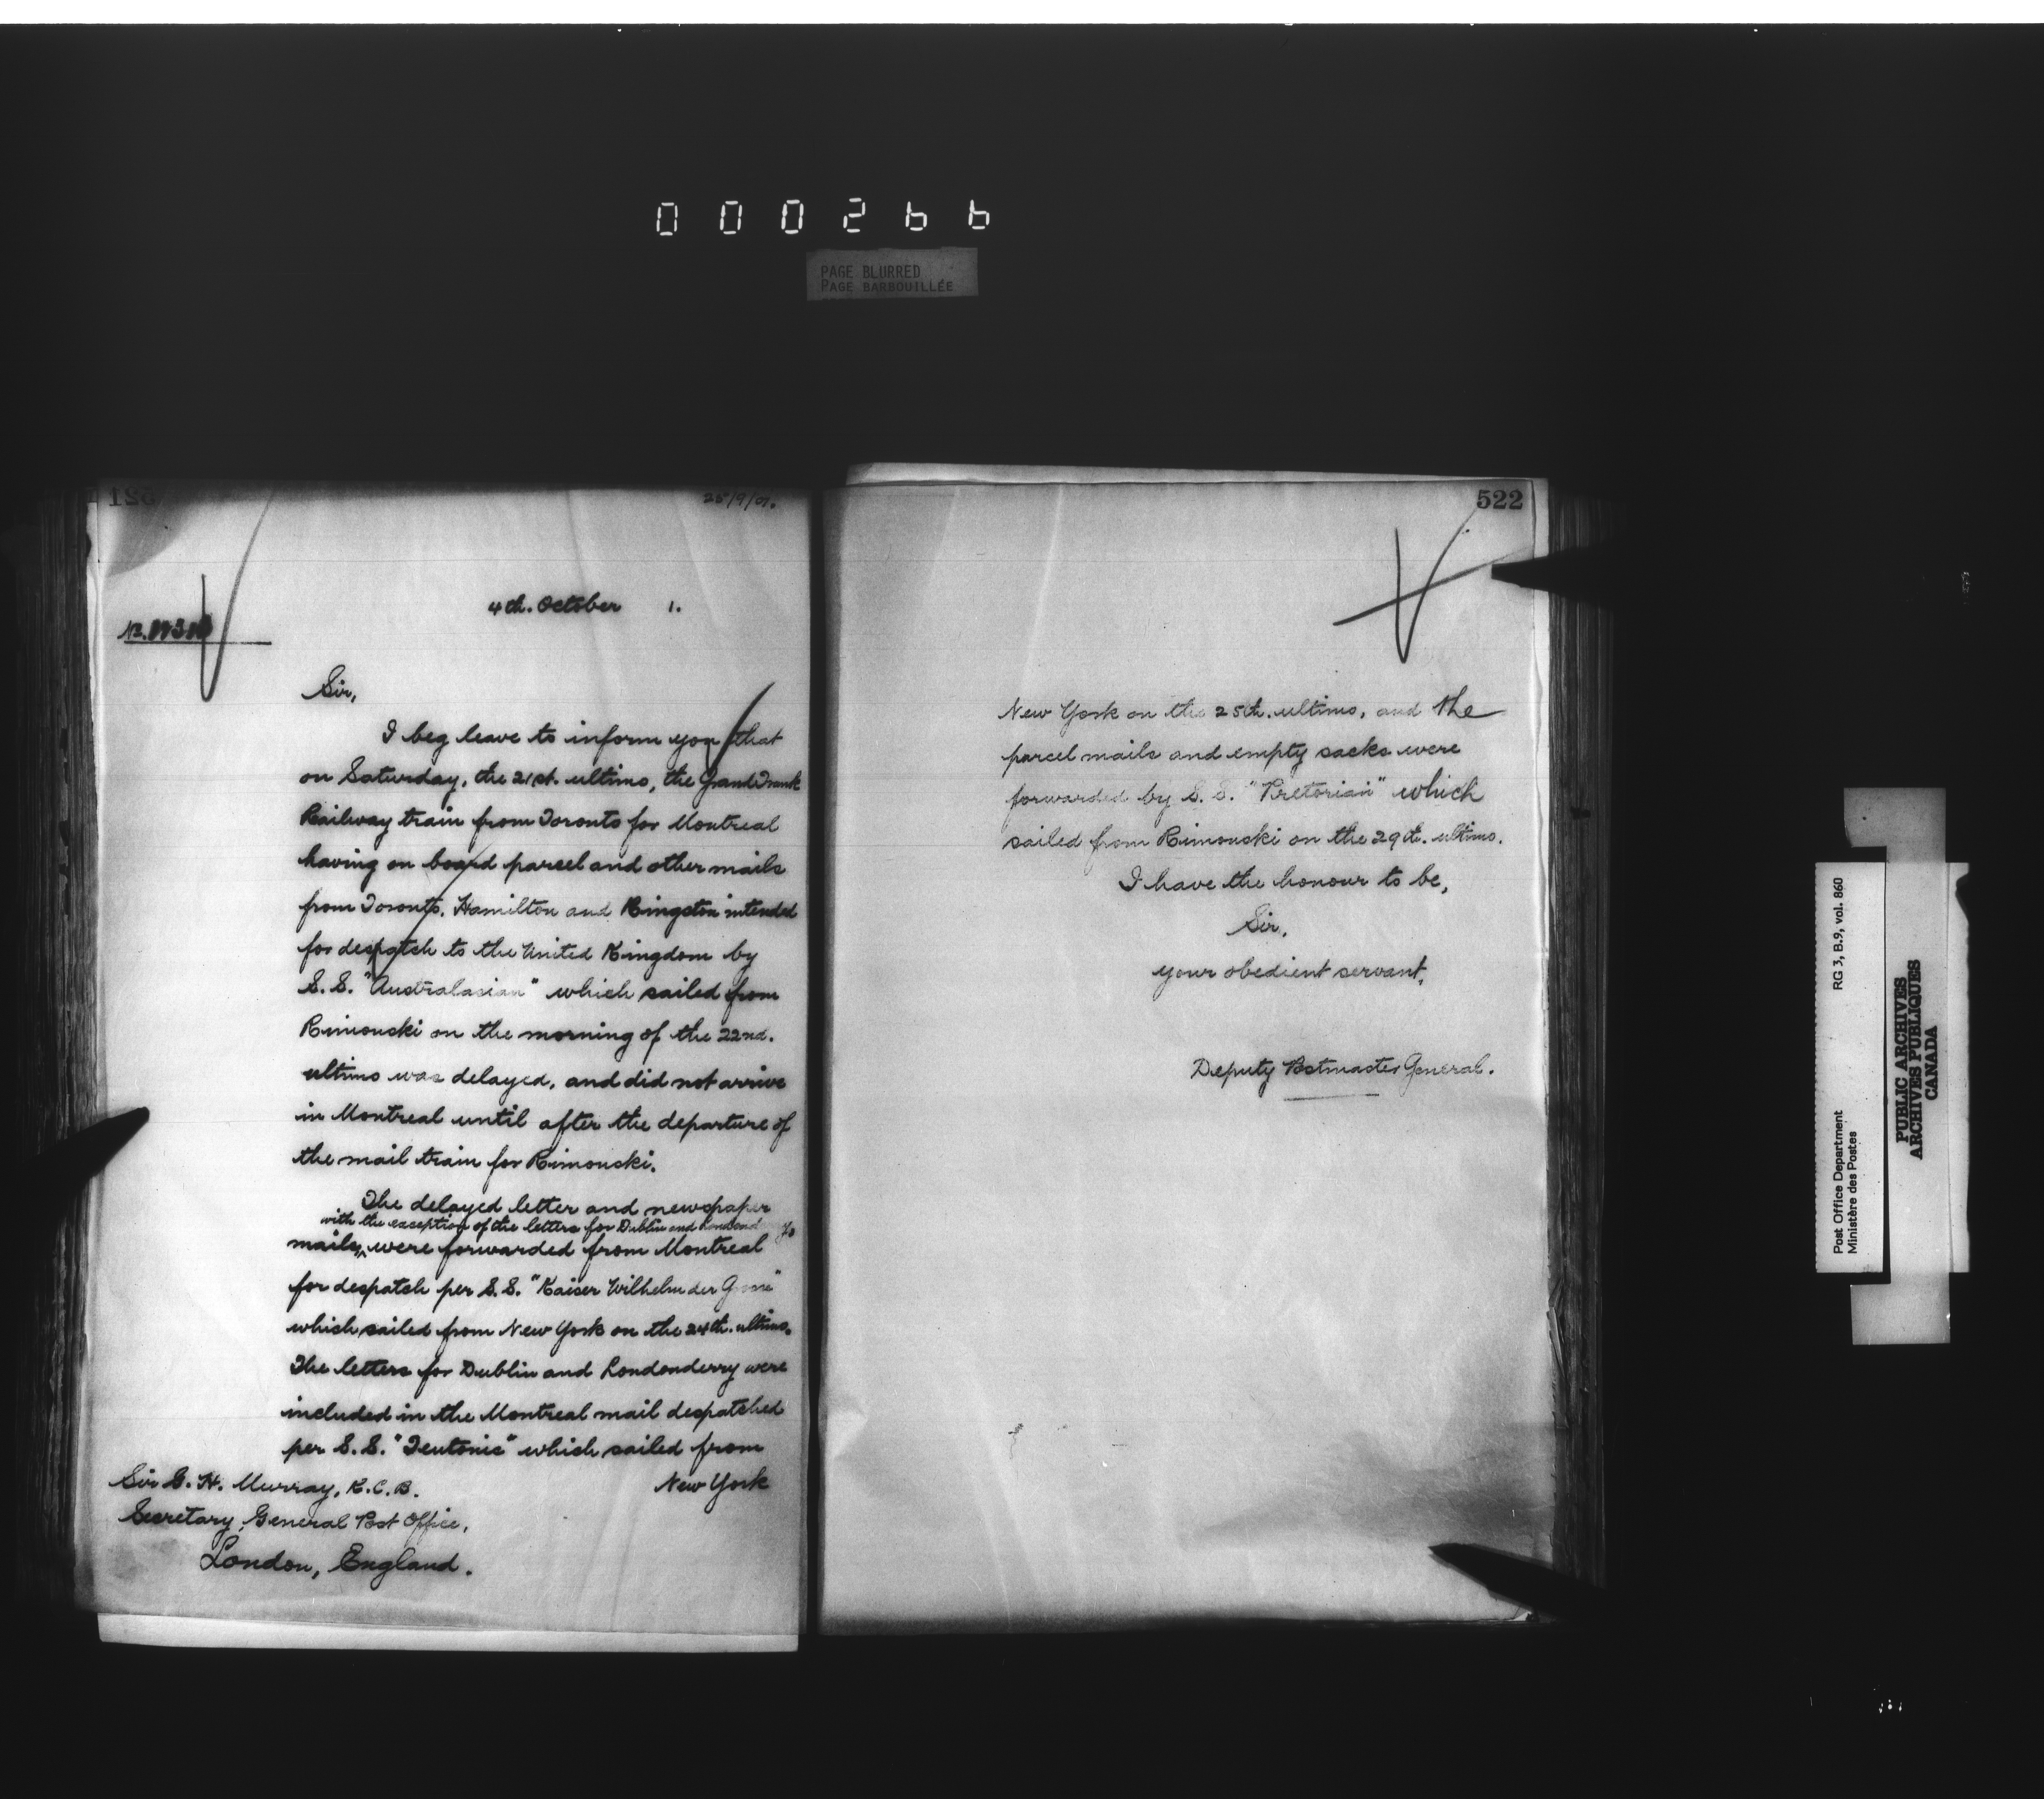 000266
PAGE BLURRED
PAGE BARBOUILLÉE
521
25/9/01.
4th. October 1.
No.
Sir,
I beg leave to inform you that
on Saturday, the 21st. ultimo, the Grand Trunk
Railway train from Toronto for Montreal
having on board parcel and other mails
from Toronto, Hamilton and Kingston intended
for despatch to the United Kingdom by
S.S. "Australasian" which sailed from
Rimouski on the morning of the 22nd.
ultimo was delayed, and did not arrive
in Montreal until after the departure of
the mail train for Rimouski.
The delayed letter and newspaper
with the exception of the letters for Dublin and
mails, were forwarded from Montreal
for despatch per S.S. "Kaiser Wilhelm der
which sailed from New York on the 24th. ultimo.
The letters for Dublin and Londonderry were
included in the Montreal mail despatched
per S.S. "Teutonic" which sailed from
New York
Sir G. H. Murray, K.C.B.
Secretary, General Post Office,
London, England.
522
New York on the 25th. ultimo, and the
parcel mails and empty sacks were
forwarded by S.S. "Pretorian" which
sailed from Rimouski on the 29th. ultimo.
I have the honour to be,
Sir,
your obedient servant,
Deputy Postmaster General.
Post Office Department
Ministère des Postes
RG 3, B.9, vol. 860
PUBLIC ARCHIVES
ARCHIVES PUBLIQUES
CANADA